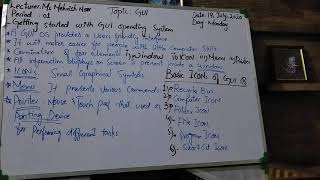 Lecturer: Ms Mehwish Noor
Topic: GUI
Date: 19, July, 2020
Period: 01
Day: Monday
Getting started with GUI operating System
A GUI OS provides a Users friendly interface
It will makes easier for people with little Computer Skills
Combination of four elements Window Icon Menu
All information displays on Screen is present inside a Window
Icons: Small Graphical Symbols
Menu: It presents Various Commands
Pointer: Mouse, Touch pad that used as
Pointing Device
for Performing different tasks
Basic Icons of GUI
1) Recycle Bin
2) Computer Icon
3) Folder Icon
4) File Icon
5) Program Icon
6) Short cut Icon